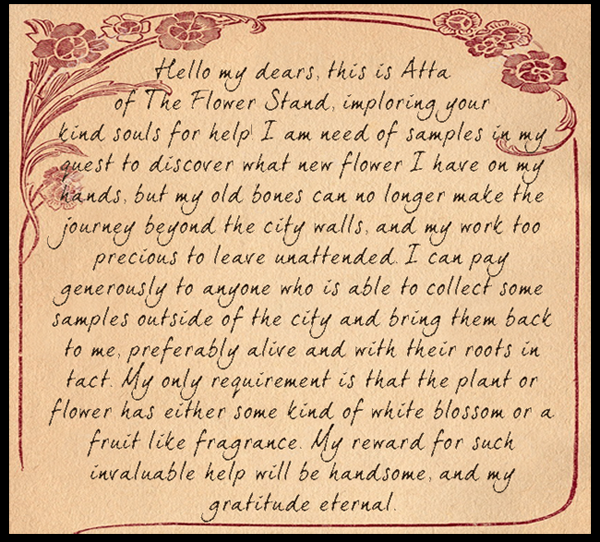 Hello my dears, this is Atta
of The Flower Stand, imploring your
kind souls for help! I am need of samples in my
quest to discover what new flower I have on my
hands, but my old bones can no longer make the
journey beyond the city walls, and my work too
precious to leave unattended. I can pay
generously to anyone who is able to collect some
samples outside of the city and bring them back
to me, preferably alive and with their roots in
tact. My only requirement is that the plant or
flower has either some kind of white blossom or a
fruit like fragrance. My reward for such
invaluable help will be handsome, and my
gratitude eternal.